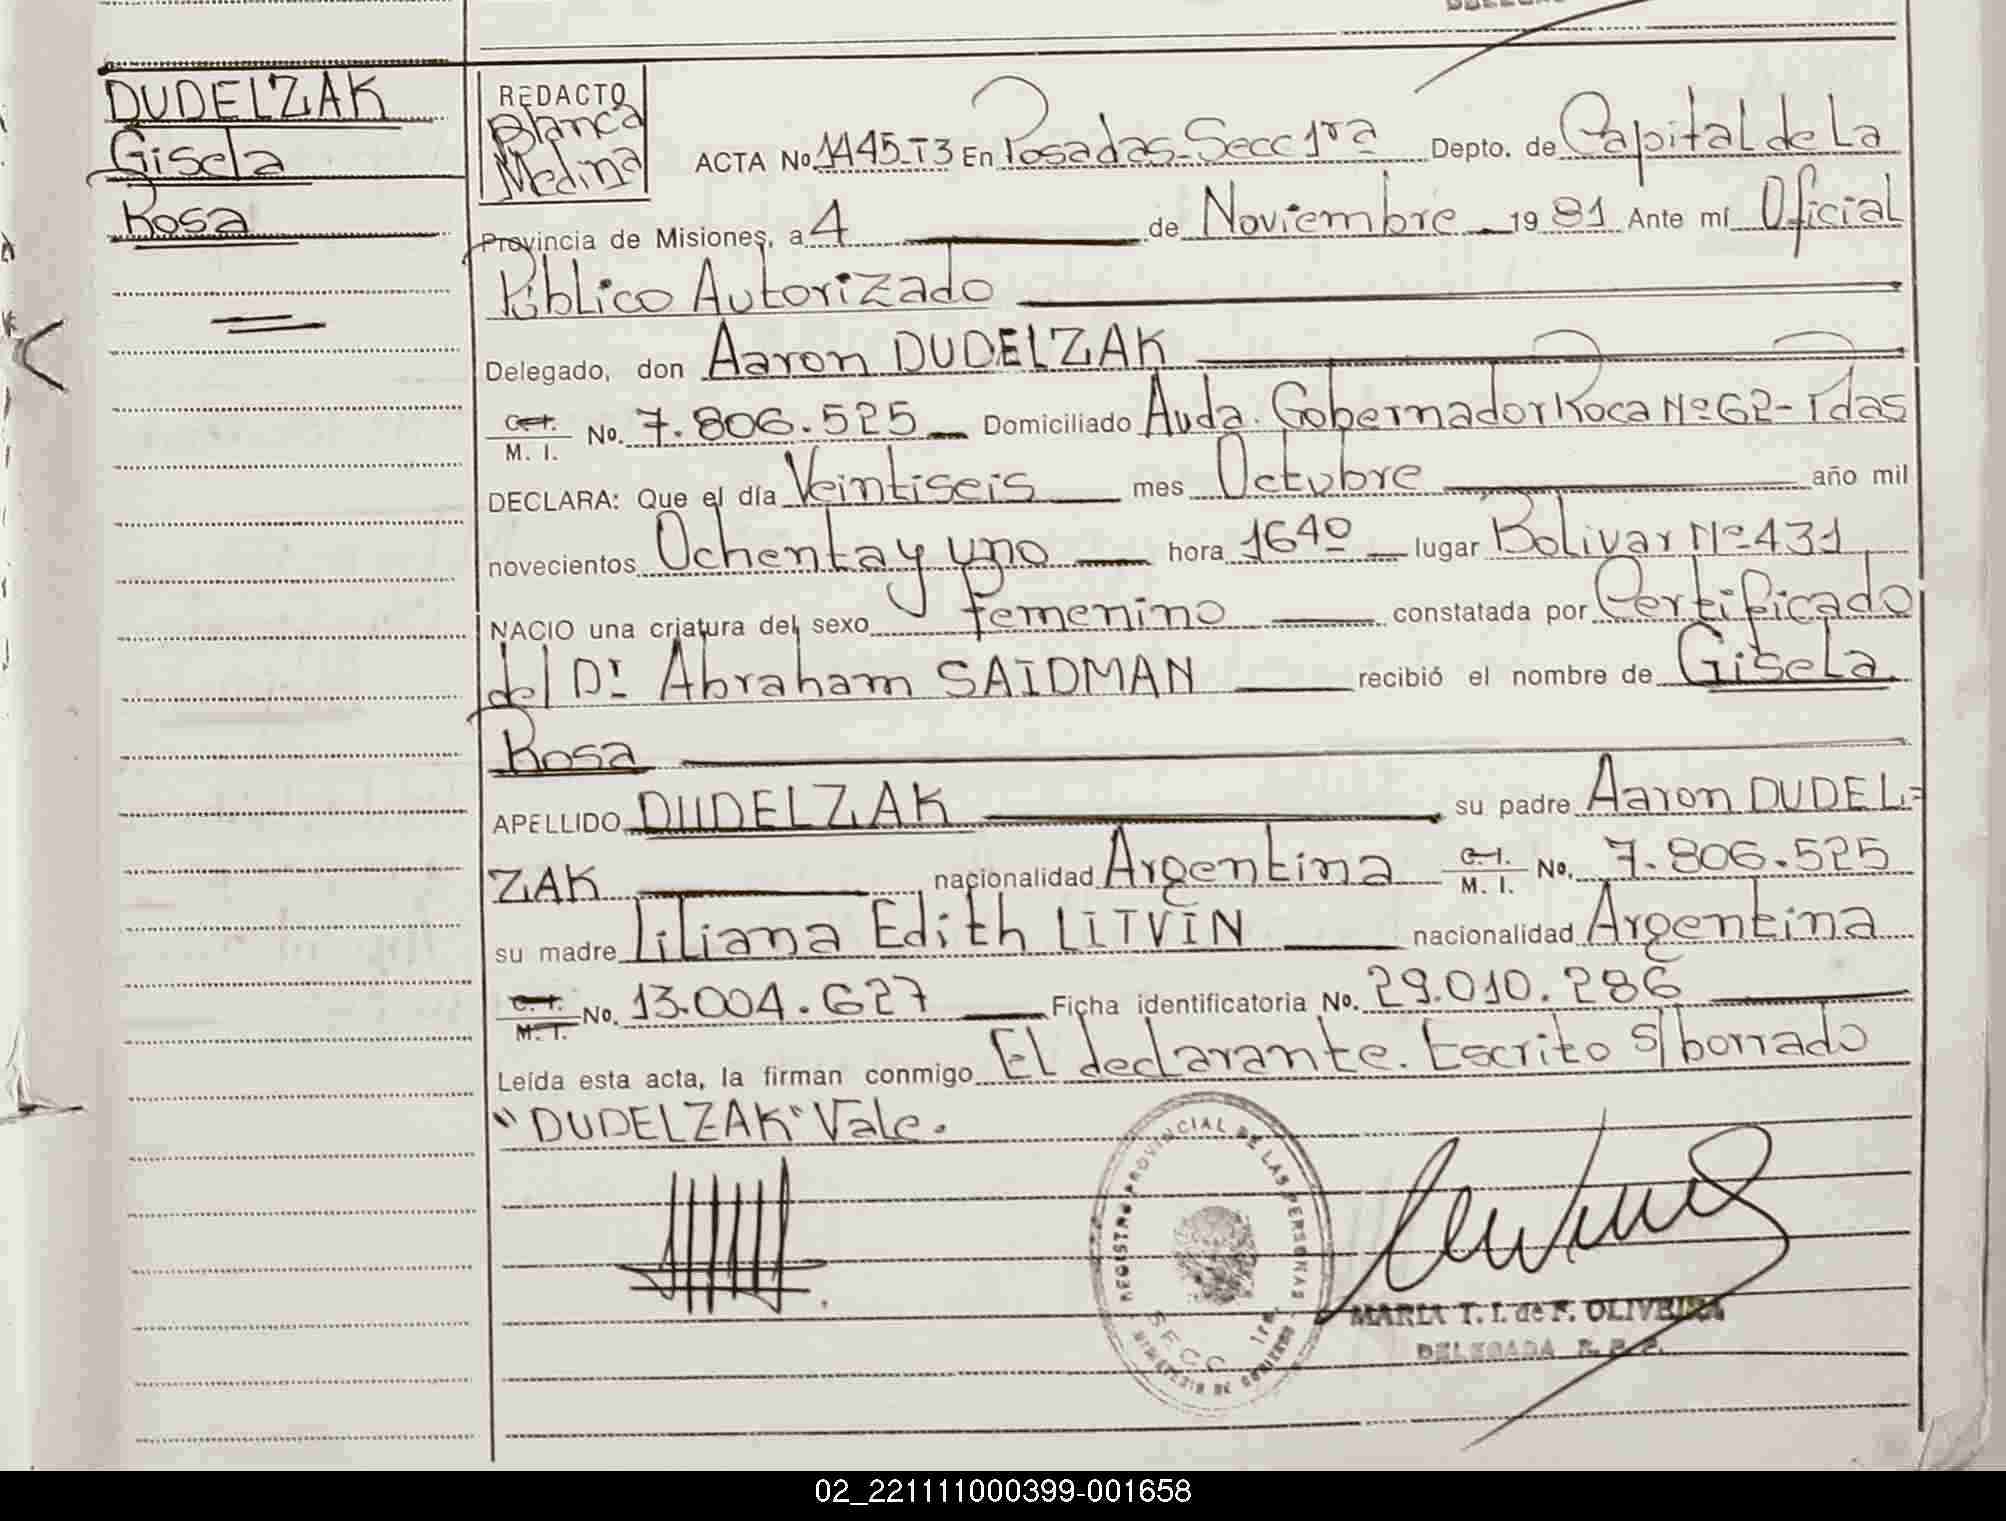 DUDELZAK
Gisela
Rosa
REDACTO
Blanca
Medina
ACTA No. 1445-T3 En Posadas-Secc 1ra Depto. de Capital de La
Provincia de Misiones, a 4 de Noviembre 19 81 Ante mí Oficial
Público Autorizado
Delegado, don Aaron DUDELZAK
C.I. M. I. No. 7.806.525 Domiciliado Avda. Gobernador Roca Nº 62- Pdas
DECLARA: Que el día Veintiseis mes Octubre año mil
novecientos Ochenta y uno hora 16 40 lugar Bolivar Nº 431
NACIO una criatura del sexo femenino constatada por Certificado
del Dr Abraham SAIDMAN recibió el nombre de Gisela
Rosa
APELLIDO DUDELZAK su padre Aaron DUDEL=
ZAK nacionalidad Argentina C.I. M. I. No. 7.806.525
su madre Liliana Edith LITVIN nacionalidad Argentina
C.I. M.I. No. 13.004.627 Ficha identificatoria No. 29.010.286
Leída esta acta, la firman conmigo El declarante. Escrito s/borrado
"DUDELZAK" Vale.
REGISTRO PROVINCIAL DE LAS PERSONAS
SECC 1ra.
MINISTERIO DE GOBIERNO
MARIA T. I. de F. OLIVEIRA
DELEGADA R. P. P.
02_221111000399-001658